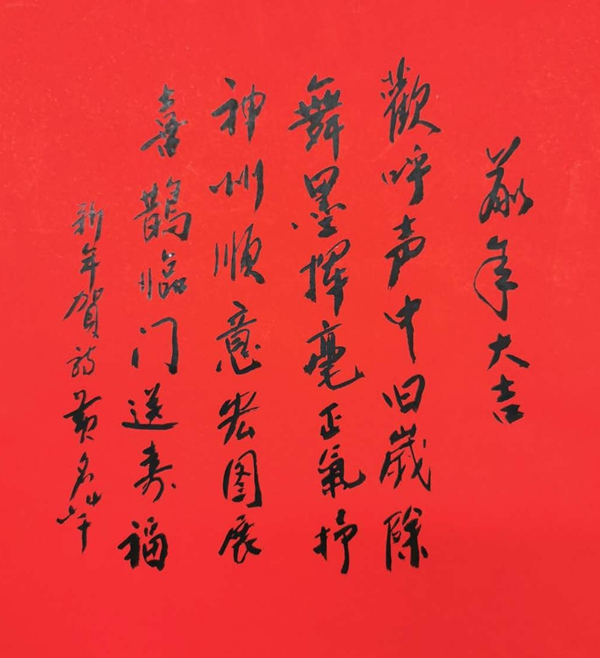 年大吉
歡呼声中旧歲除
舞墨揮毫正氣抒
神州順意宏图展
喜鵲臨门送寿福
新年賀诗黄名